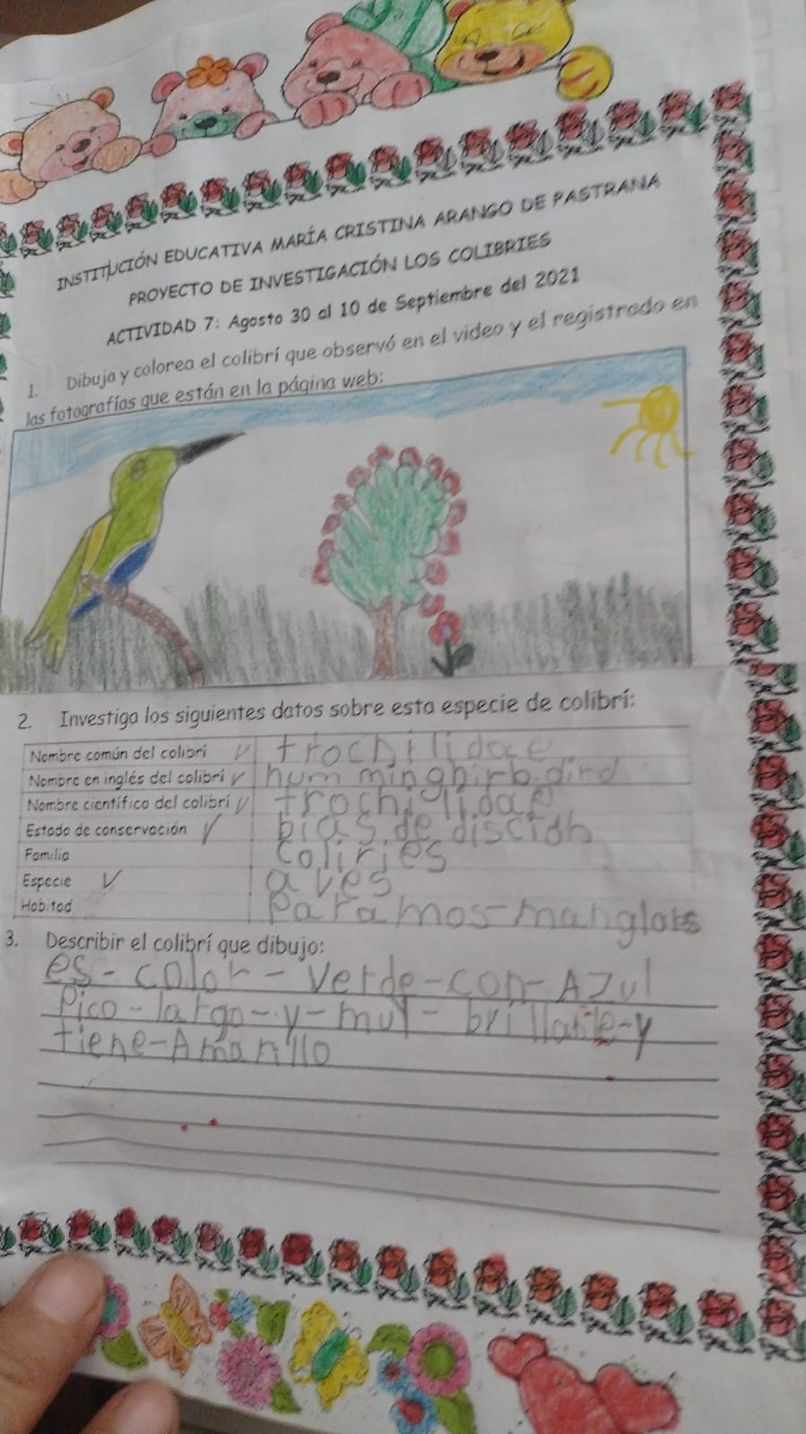 INSTITUCIÓN EDUCATIVA MARÍA CRISTINA ARANGO DE PASTRANA
PROYECTO DE INVESTIGACIÓN LOS COLIBRIES
ACTIVIDAD 7: Agosto 30 al 10 de Septiembre del 2021
1. Dibuja y colorea el colibrí que observó en el video y el registrado en
las fotografías que están en la página web:
2. Investiga los siguientes datos sobre esta especie de colibrí:
Nombre común del colibrí trochilidace
Nombre en inglés del colibrí hum minghirb.dird
Nombre científico del colibrí trochiglidae
Estado de conservación bias de disción
Familia coliries
Especie aves
Habitad Paramos-manglars
3. Describir el colibrí que dibujo:
es-color-verde-con-Azul
Pico-largo-y-muy-brillante-y
tiene-Amarillo